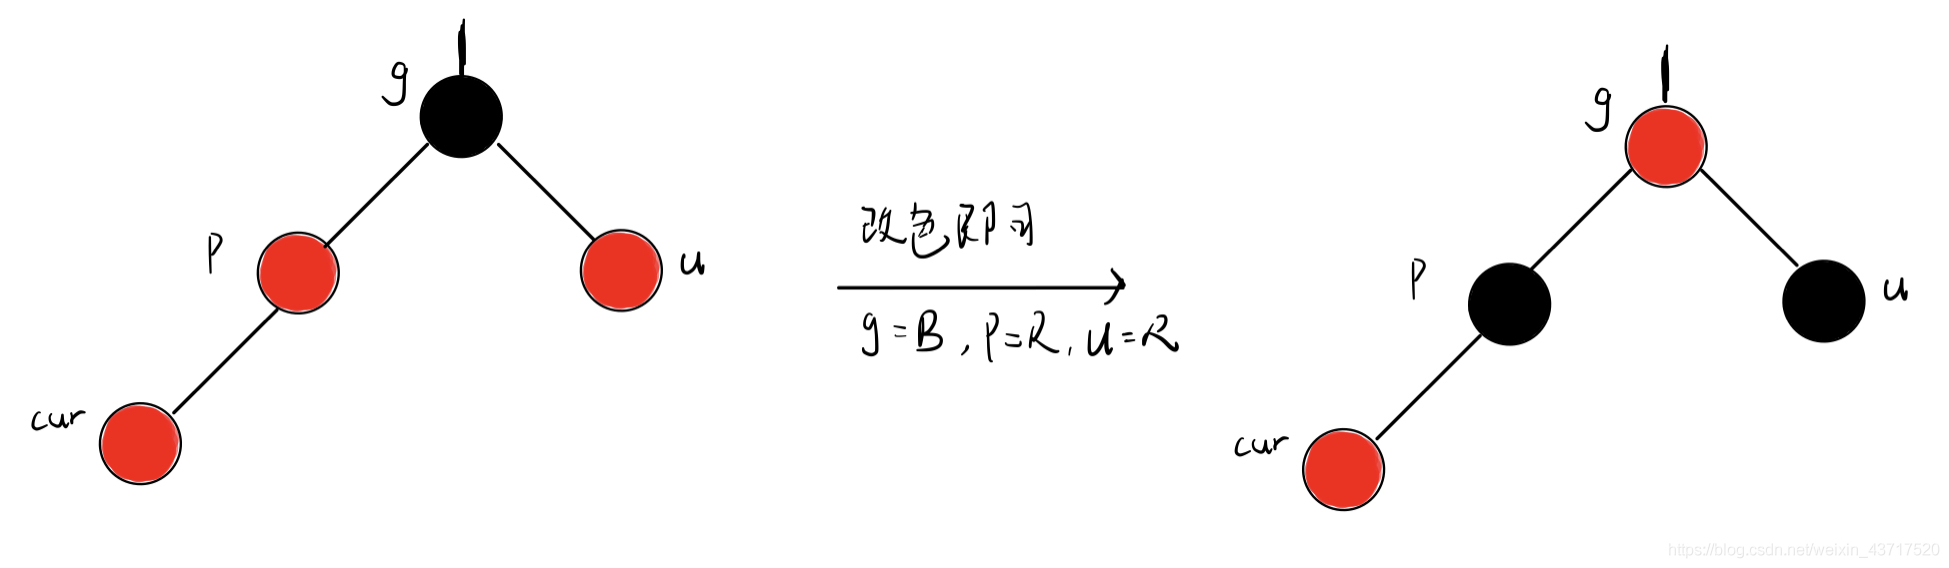 g
p
u
cur
改色即可
g=B,p=R,u=R
g
p
u
cur
https://blog.csdn.net/weixin_43717520